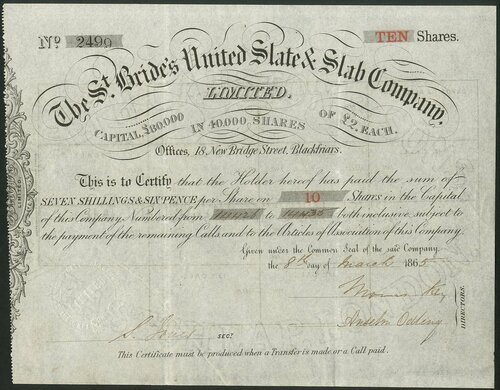 No. 2490
TEN Shares.
The St. Bride's United Slate & Slab Company,
LIMITED.
CAPITAL, £80,000 IN 40,000 SHARES OF £2, EACH.
Offices, 18, New Bridge Street, Blackfriars.
This is to Certify that the Holder hereof has paid the sum of
SEVEN SHILLINGS & SIXPENCE per Share on 10 Shares in the Capital
of this Company Numbered from to both inclusive, subject to
the payment of the remaining Calls, and to the Articles of Association of this Company.
Given under the Common Seal of the said Company,
the 8th day of March 1865
DIRECTORS.
Anselm Odling
S. Jones SECY.
This Certificate must be produced when a Transfer is made or a Call paid.